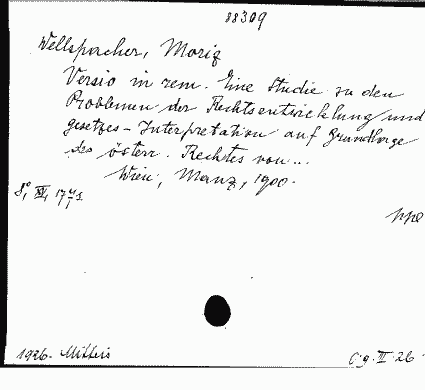 88309
Wellspacher, Moriz
Versio in rem. Eine Studie zu den
Problemen der Rechtsentwicklung und
gesetzes-Interpretation auf Grundlage
des österr. Rechtes von...
Wien, Manz, 1900.
8°, XII,
1926. Mitteis
C.g.II.26